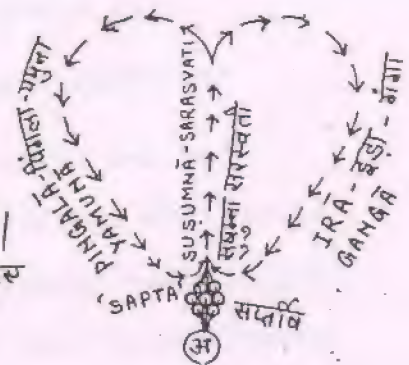 PINGALĀ-पिंगला-यमुना
YAMUNĀ
SUṢUMNĀ-SARASVATI
सुषुम्ना सरस्वती
IRĀ - इड़ा - गंगा
GANGĀ
'SAPTA
सप्तर्षि
अ